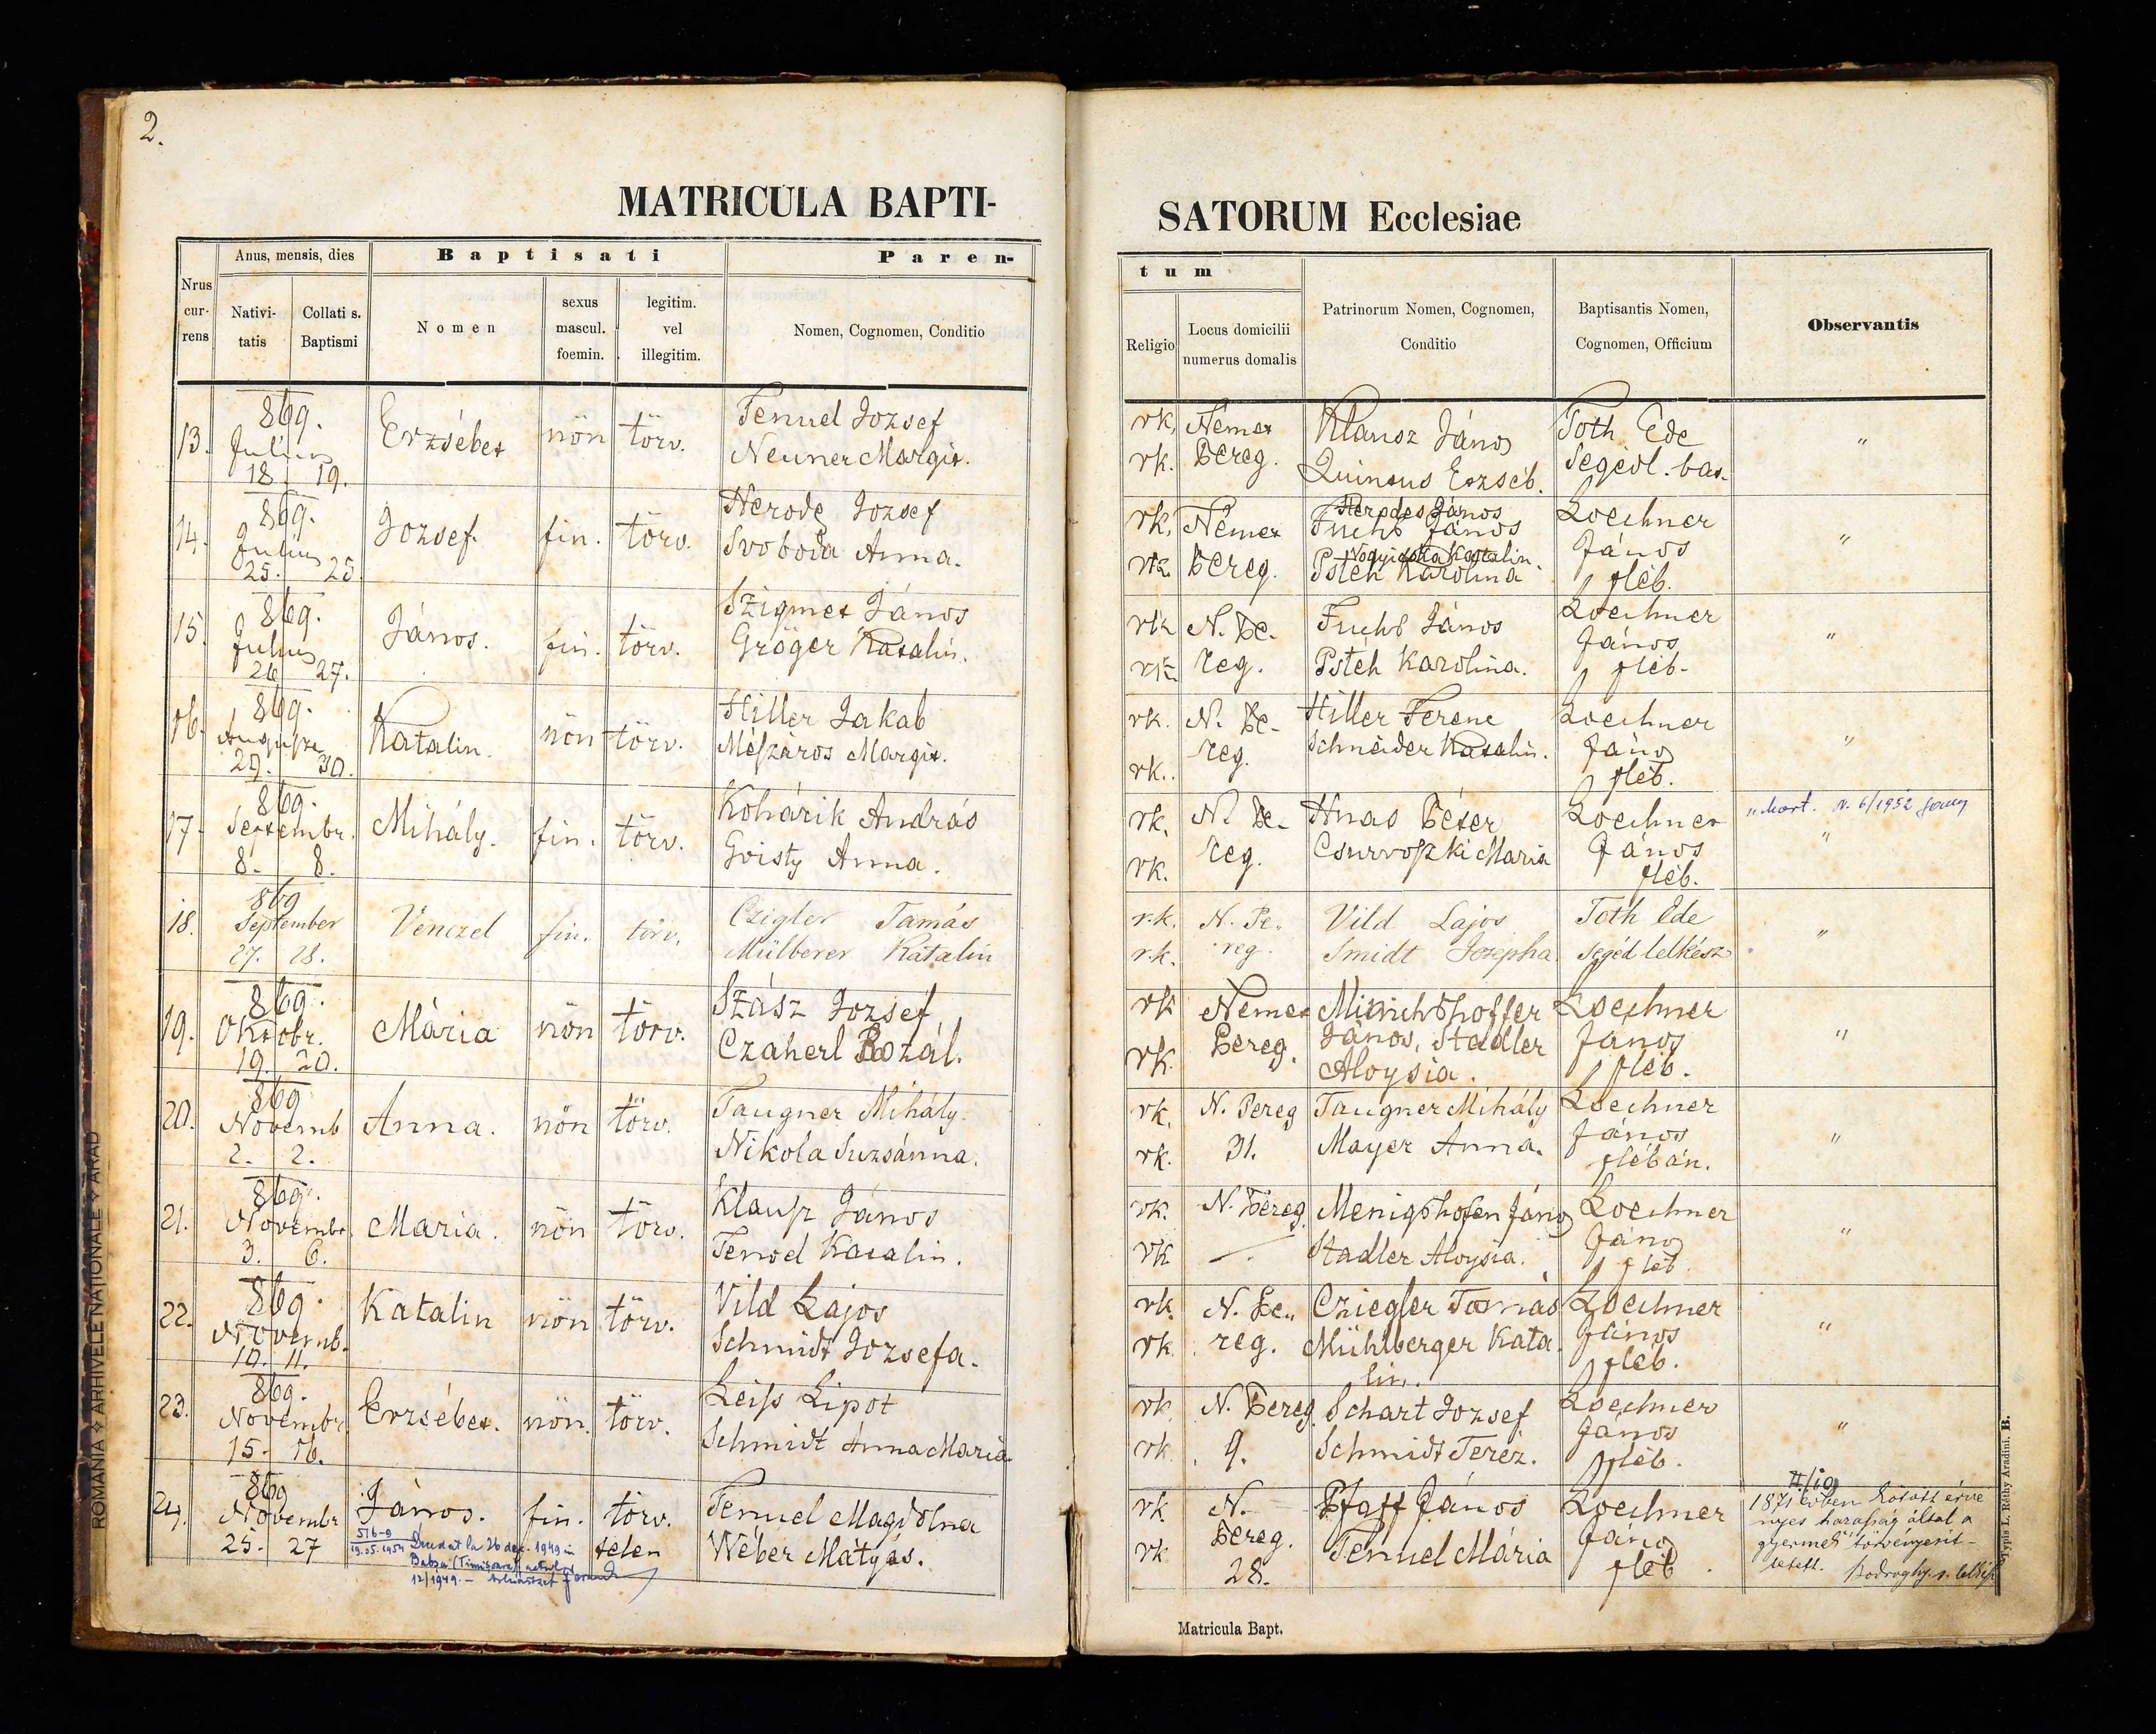 2.
MATRICULA BAPTI-
Nrus currens
Anus, mensis, dies
Nativitatis
Collati s. Baptismi
Baptisati
Nomen
sexus mascul. foemin.
legitim. vel illegitim.
Paren-
Nomen, Cognomen, Conditio
SATORUM Ecclesiae
tum
Religio
Locus domicilii numerus domalis
Patrinorum Nomen, Cognomen, Conditio
Baptisantis Nomen, Cognomen, Officium
Observantis
13. 869. Julius 18. 19. Erzsébet nön törv. Tenuel Jozsef Neuner Margit.
rk. rk. Német Pereg. Klausz János Quintus Erzséb. Toth Ede Segédl. "
14. 869. Julius 25. 25 Jozsef. fin. törv. Herode Jozsef Svoboda Anna.
rk. Német Pereg. Herodes János Fuchs János Katalin Psteh Karolina Loechner János pleb. "
15. 869. Julius 26 27. János. fin. törv. Szigmet János Gröger Katalin.
rk. N. Pereg. Fuchs János Psteh Karolina. Loechner János pleb. "
16. 869. 29. 30. Katalin. nön törv. Hiller Jakab Mészáros Margit.
rk. rk. N. Pereg. Hiller Ferenc Schneider Katalin. Loechner János pleb. "
17. 869. Septembr. 8. 8. Mihály. fin. törv. Kohárik András Anna.
rk. rk. N. Pereg. Hnas Péter Maria Loechner János pleb. "
"Mort. N. 6/1952
18. 869 September 27. 28. Venczel fin. törv. Czigler Tamás Mülberer Katalin
r.k. r.k. N. Pe„reg Vild Lajos Smidt Jozepha Toth Ede segéd lelkész "
19. 869. Oktobr. 19. 20. Mária nön törv. Szász Jozsef, Czaherl Rozál.
rk rk. Német Pereg. Minichshoffer János, Stadler Aloysia. Loechner János pleb. "
20. 869 Novemb 2. 2. Anna. nön törv. Taugner Mihály. Nikola Suzsánna.
rk. rk. N. Pereg 31. Taugner Mihály Mayer Anna. Loechner János plébán. "
21. 869. Novembr. 3. 6. Maria. nön törv. Klausz János Katalin.
rk. rk N. Pereg. Menigshofen János Stadler Aloysia. Loechner János pleb "
22. 869. Novemb. 10. 11. Katalin nön törv. Vild Lajos Schmidt Jozsefa.
rk. rk. N. Pe„reg. Cziegler Tomás Mühlberger Katalin. Loechner János pleb. "
23. 869. Novembr. 15. 16. Erzsébet. nön. törv. Leiss Lipot Schmidt Anna Maria
rk. rk N. Pereg. 9. Schart Jozsef Schmidt Teréz. Loechner János pleb. "
24. 869 Novembr 25. 27 János. fin. törvtelen Tenuel Magdolna Wéber Mátyás.
rk. rk N. Pereg. 28. Pfaff János Tenuel Mária Loechner János pleb
516-9
19.05.1954
la 26 dec. 1949 in
(Timișoara)
12/1949.
1871 évben kötött érvé
nyes házasság által a
gyermek törvényesít-
tetett. Bodroghy
Matricula Bapt.
Typis L. Réthy Aradini. B.
ROMANIA ARHIVELE NATIONALE ARAD